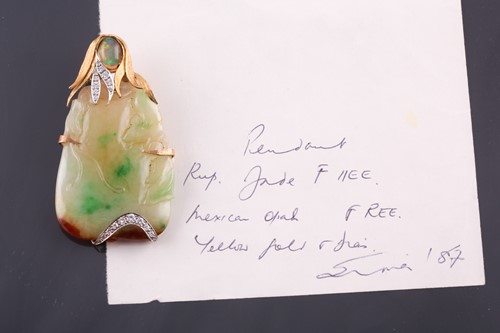 Pendant
Rup. Jade F IIEE.
Mexican opals FREE.
Yellow gold & dias.
'87